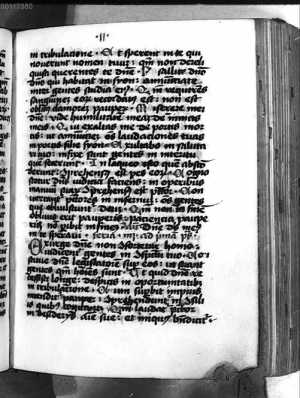 00112380
·II·
in tribulatione · Et sperent in te qui
noverunt nomen tuum: qm non dereli
quisti querentes te dne · Psallite dno
qui habitat in syon: annuntiate
inter gentes studia eius · Qm requirens
sanguinem eor recordatus est: non est
oblitus clamorem pauperum · Miserere mei
dne: vide humilitatem meam de inimicis
meis · Qui exaltas me de portis mortis
ut annuntiem oes laudationes tuas
in portis filie syon · Exultabo in salutari
tuo: infixe sunt gentes in interitu
que fecerunt · In laqueo isto quem abscon
derunt: comprehensus est pes eor · Cognosce
tur dns iudicia faciens: in operibus
manuum suarum comprehensus est pctor · Con
vertantur pctores in infernum: oes gentes
que obliviscuntur deum · Qm non in finem
oblivio erit pauperis: patientia paupe
rum non peribit in finem
Exurge dne non confortetur homo:
iudicentur gentes in conspectu tuo
gentes qm homines sunt · Ut quid dne re
cessisti longe: despicis in oportunitatibus
in tribulatione · Dum superbit impius
incenditur pauper: comprehenduntur in consili
is quibus cogitant · Qm laudatur pctor
in desideriis aie sue: et iniquus benedicitur